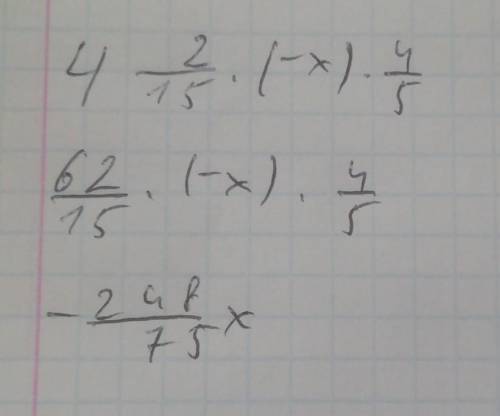 4 2/15 · (-x) · 4/5
62/15 · (-x) · 4/5
- 248/75 x